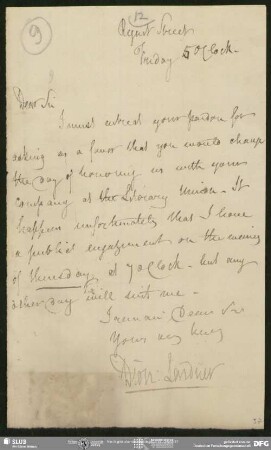 9
12
Regent Street
Friday 5 o Clock.
Dear Sir
I must entreat your pardon for
asking as a favor that you would change
the day of honoring us with your
company at the Literary Union. It
happens unfortunately that I have
a public engagement on the evening
of Thursday at 7 o Clock. but any
other day will suit me.
I remain Dear Sir
Yours very truly
Dion: Lardner
SLUB
DFG